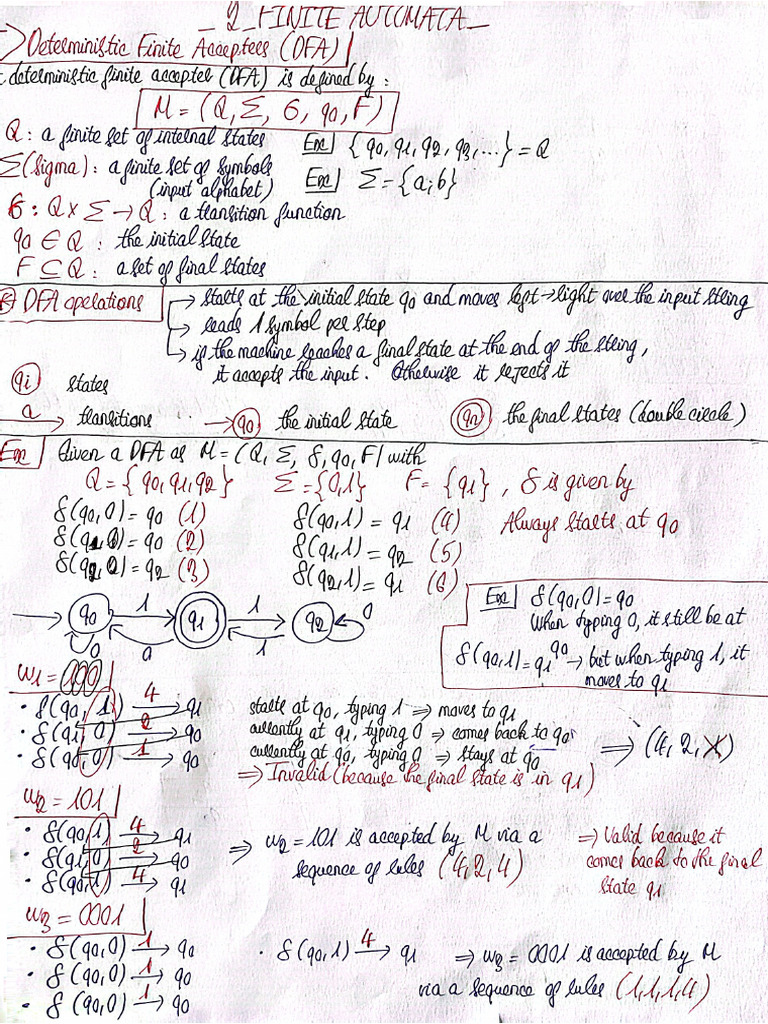 _ 2_FINITE AUTOMATA_
Deterministic Finite Accepters (DFA)
deterministic finite accepter (DFA) is defined by :
M = (Q, Σ, δ, q0, F)
Q : a finite set of internal states
Ex { q0, q1, q2, q3, ...} = Q
Σ (sigma) : a finite set of symbols
(input alphabet)
Ex Σ = {a; b}
δ : Q x Σ → Q : a transition function
q0 ∈ Q : the initial state
F ⊆ Q : a set of final states
DFA operations
→ starts at the initial state q0 and moves left → right over the input string
→ reads 1 symbol per step
→ if the machine reaches a final state at the end of the string,
it accepts the input. Otherwise it rejects it
qi states
a → transitions
→ q0 the initial state
qn the final states (double circle)
Ex Given a DFA as M = (Q, Σ, δ, q0, F) with
Q = { q0, q1, q2 } Σ = {0,1} F = {q1} , δ is given by
δ(q0, 0) = q0 (1)
δ(q0, 1) = q1 (4)
Always starts at q0
δ(q1, 0) = q0 (2)
δ(q1, 1) = q2 (5)
δ(q2, 0) = q2 (3)
δ(q2, 1) = q1 (6)
q0 1 q1 1 q2 0
0 0 1
Ex δ(q0, 0) = q0
When typing 0, it still be at
q0
δ(q0, 1) = q1 → but when typing 1, it
moves to q1
w1 = 000
• δ(q0, 1) 4→ q1 starts at q0, typing 1 ⇒ moves to q1
• δ(q1, 0) 2→ q0 currently at q1, typing 0 ⇒ comes back to q0
• δ(q0, 0) 1→ q0 currently at q0, typing 0 ⇒ stays at q0
⇒ (4, 2, X)
⇒ Invalid (because the final state is in q1)
w2 = 101
• δ(q0, 1) 4→ q1
• δ(q1, 0) 2→ q0
• δ(q0, 1) 4→ q1
⇒ w2 = 101 is accepted by M via a
sequence of rules (4, 2, 4)
⇒ Valid because it
comes back to the final
state q1
w3 = 0001
• δ(q0, 0) 1→ q0
• δ(q0, 0) 1→ q0
• δ(q0, 0) 1→ q0
• δ(q0, 1) 4→ q1
⇒ w3 = 0001 is accepted by M
via a sequence of rules (1, 1, 1, 4)